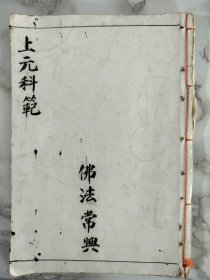 上元科範
佛法常興